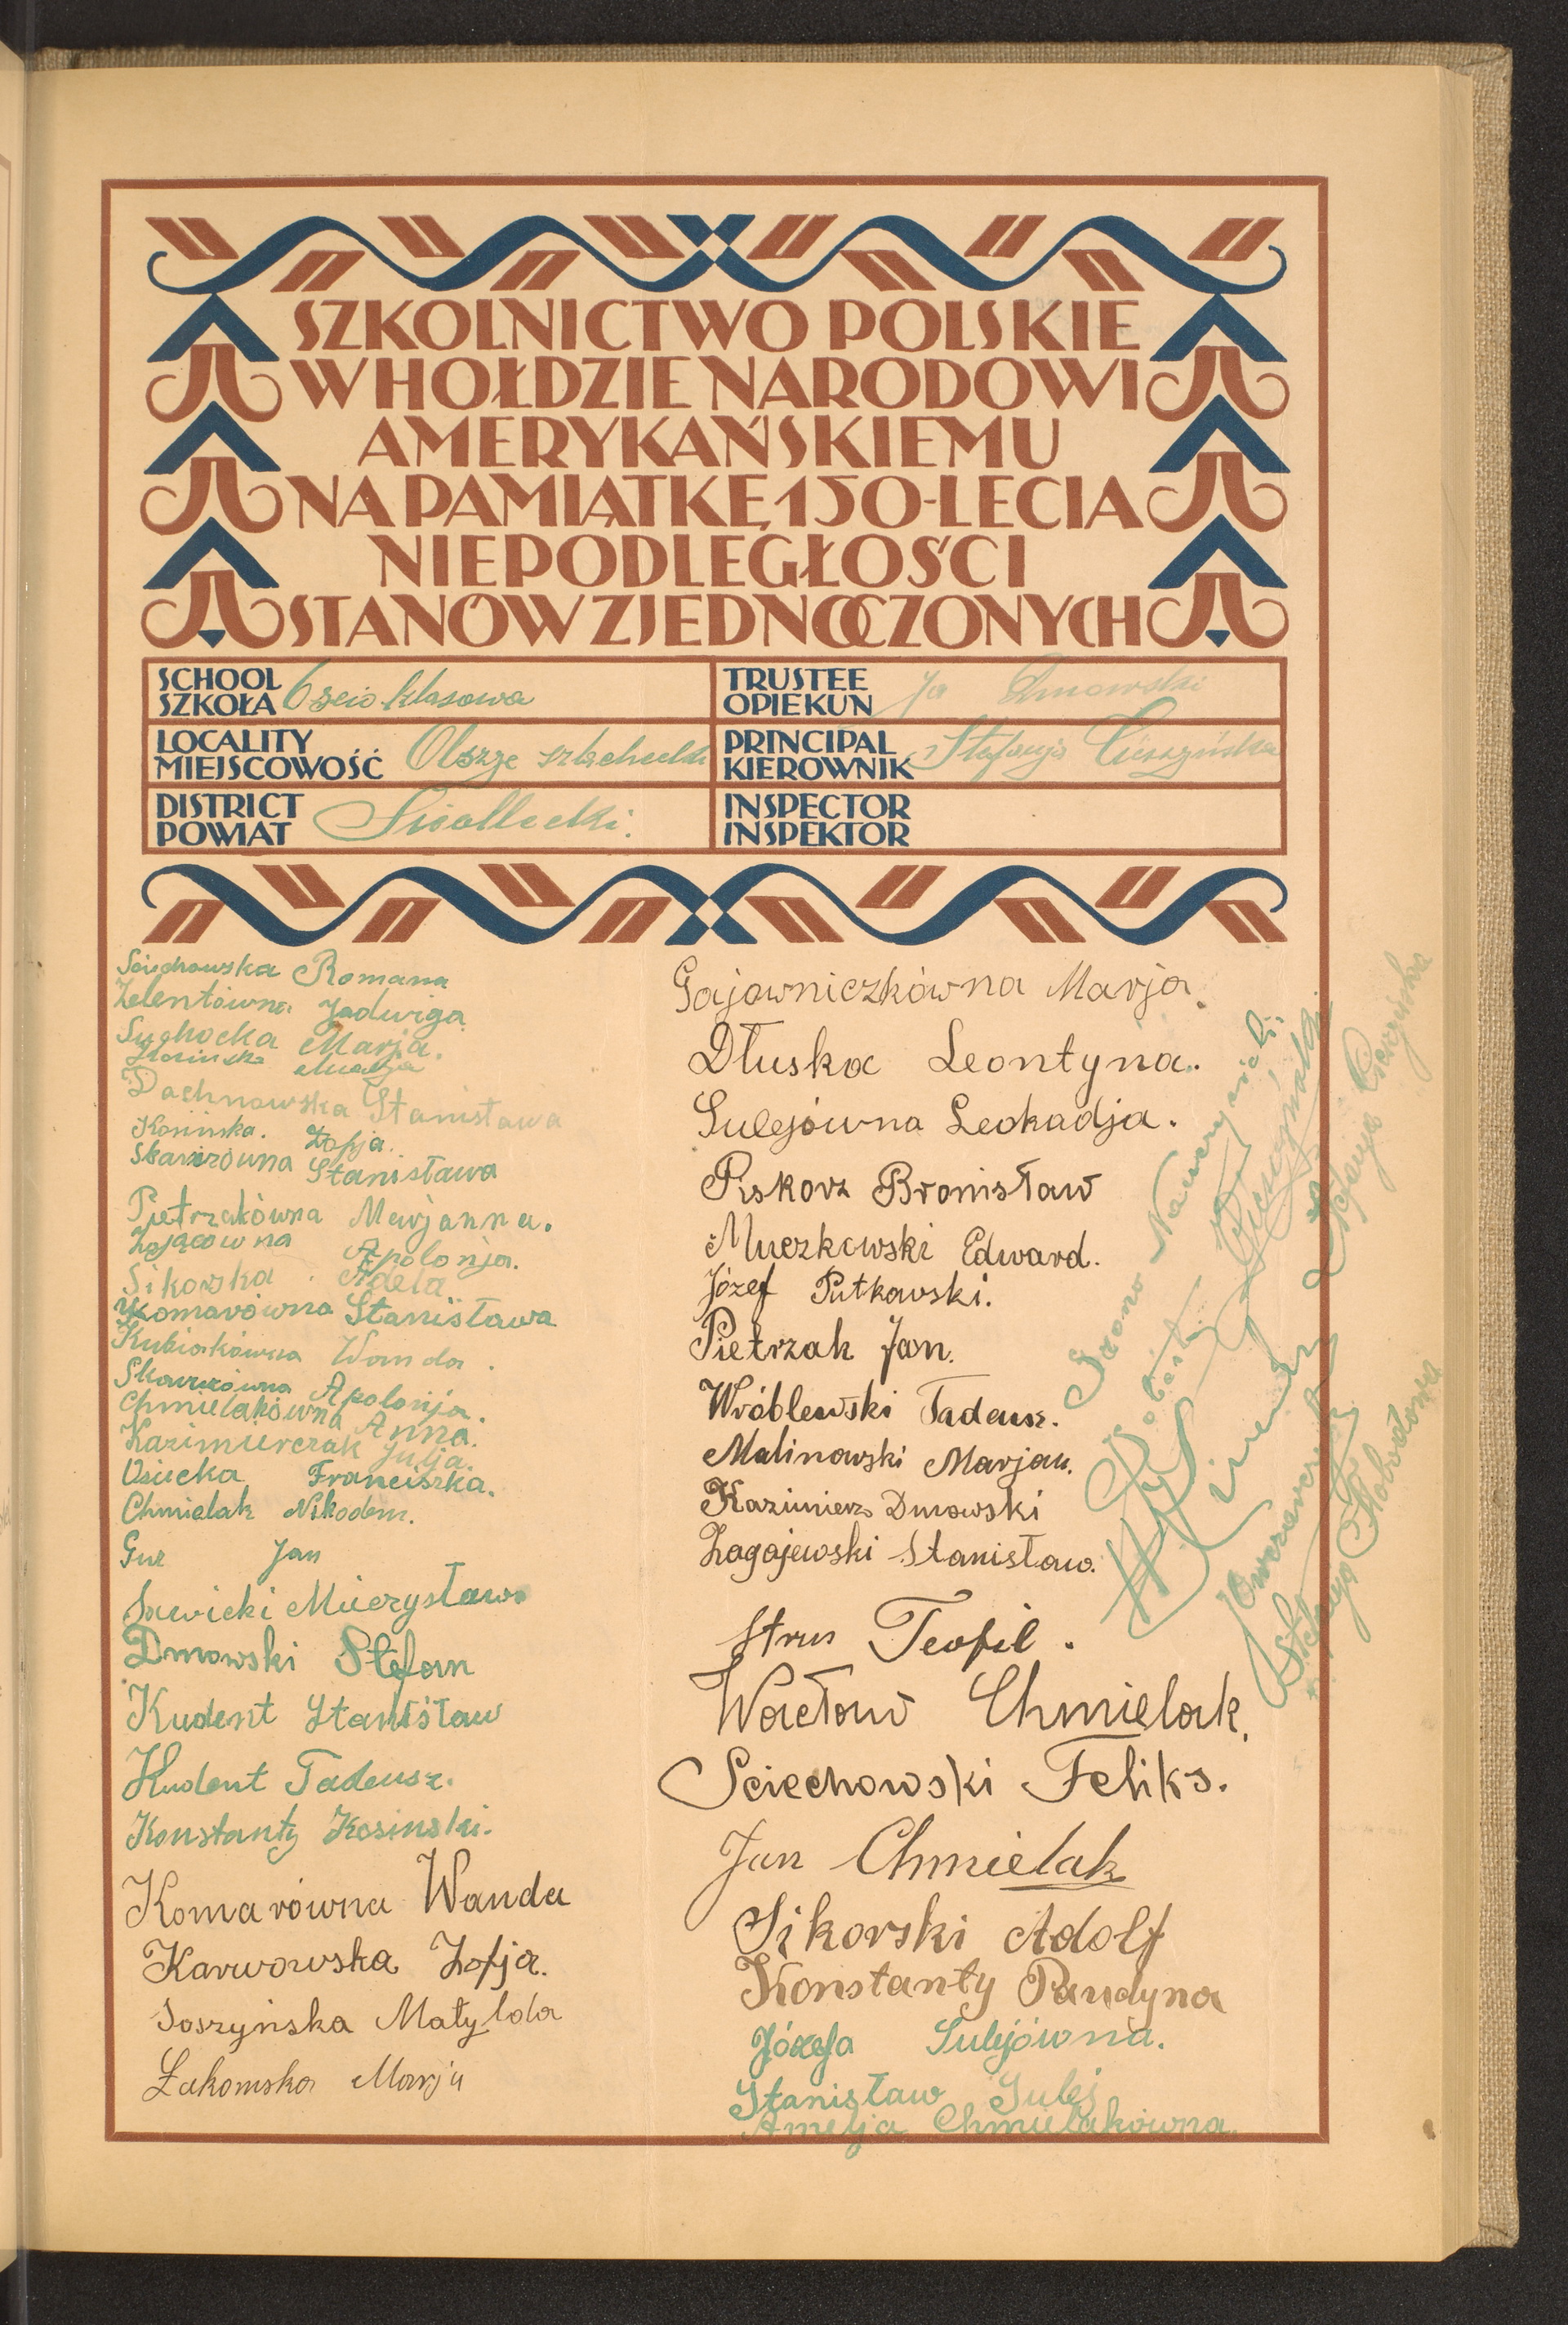 SZKOLNICTWO POLSKIE
W HOŁDZIE NARODOWI
AMERYKAŃSKIEMU
NA PAMIĄTKĘ 150-LECIA
NIEPODLEGŁOŚCI
STANÓW ZJEDNOCZONYCH
SCHOOL
SZKOŁA 6 scio klasowa
TRUSTEE
OPIEKUN Dmowski
LOCALITY
MIEJSCOWOŚĆ Olszyc szlachecki
PRINCIPAL
KIEROWNIK Stefanja Cieszyńska
DISTRICT
POWIAT Siedlecki.
INSPECTOR
INSPEKTOR
Romana
Zelentówna Jadwiga
Suchocka Marja.
Dachnowska Stanisława
Kosinska. Zofja.
Stanisława
Pietrzakówna Marjanna.
Zającówna Apolonja.
Sikorska. Adela
Komarówna Stanisława
Kubiakówna Wanda.
Apolonja.
Chmielakówna Anna.
Kazimierczak Julja.
Osiecka Franciszka.
Chmielak Nikodem.
Gur Jan
Sawicki Mieczysław.
Dmowski Stefan
Kudent Stanisław
Kudent Tadeusz.
Konstanty Kosinski.
Komarówna Wanda
Karwowska Zofja.
Soszyńska Matylda
Łakomska Marja
Gajowniczkówna Marja.
Dłuska Leontyna.
Sulejówna Leokadja.
Piskorz Bronisław
Muczkowski Edward.
Józef Putkowski.
Pietrzak Jan.
Wróblewski Tadeusz.
Malinowski Marjan.
Kazimierz Dmowski
Zagajewski Stanisław.
Strus Teofil.
Wacław Chmielak.
Sciechowski Feliks.
Jan Chmielak
Sikorski Adolf
Konstanty Pandyna
Józefa Sulejówna.
Stanisław Sulej
Chmielakówna.
Grono Nauczycieli:
Stefanja Cieszyńska